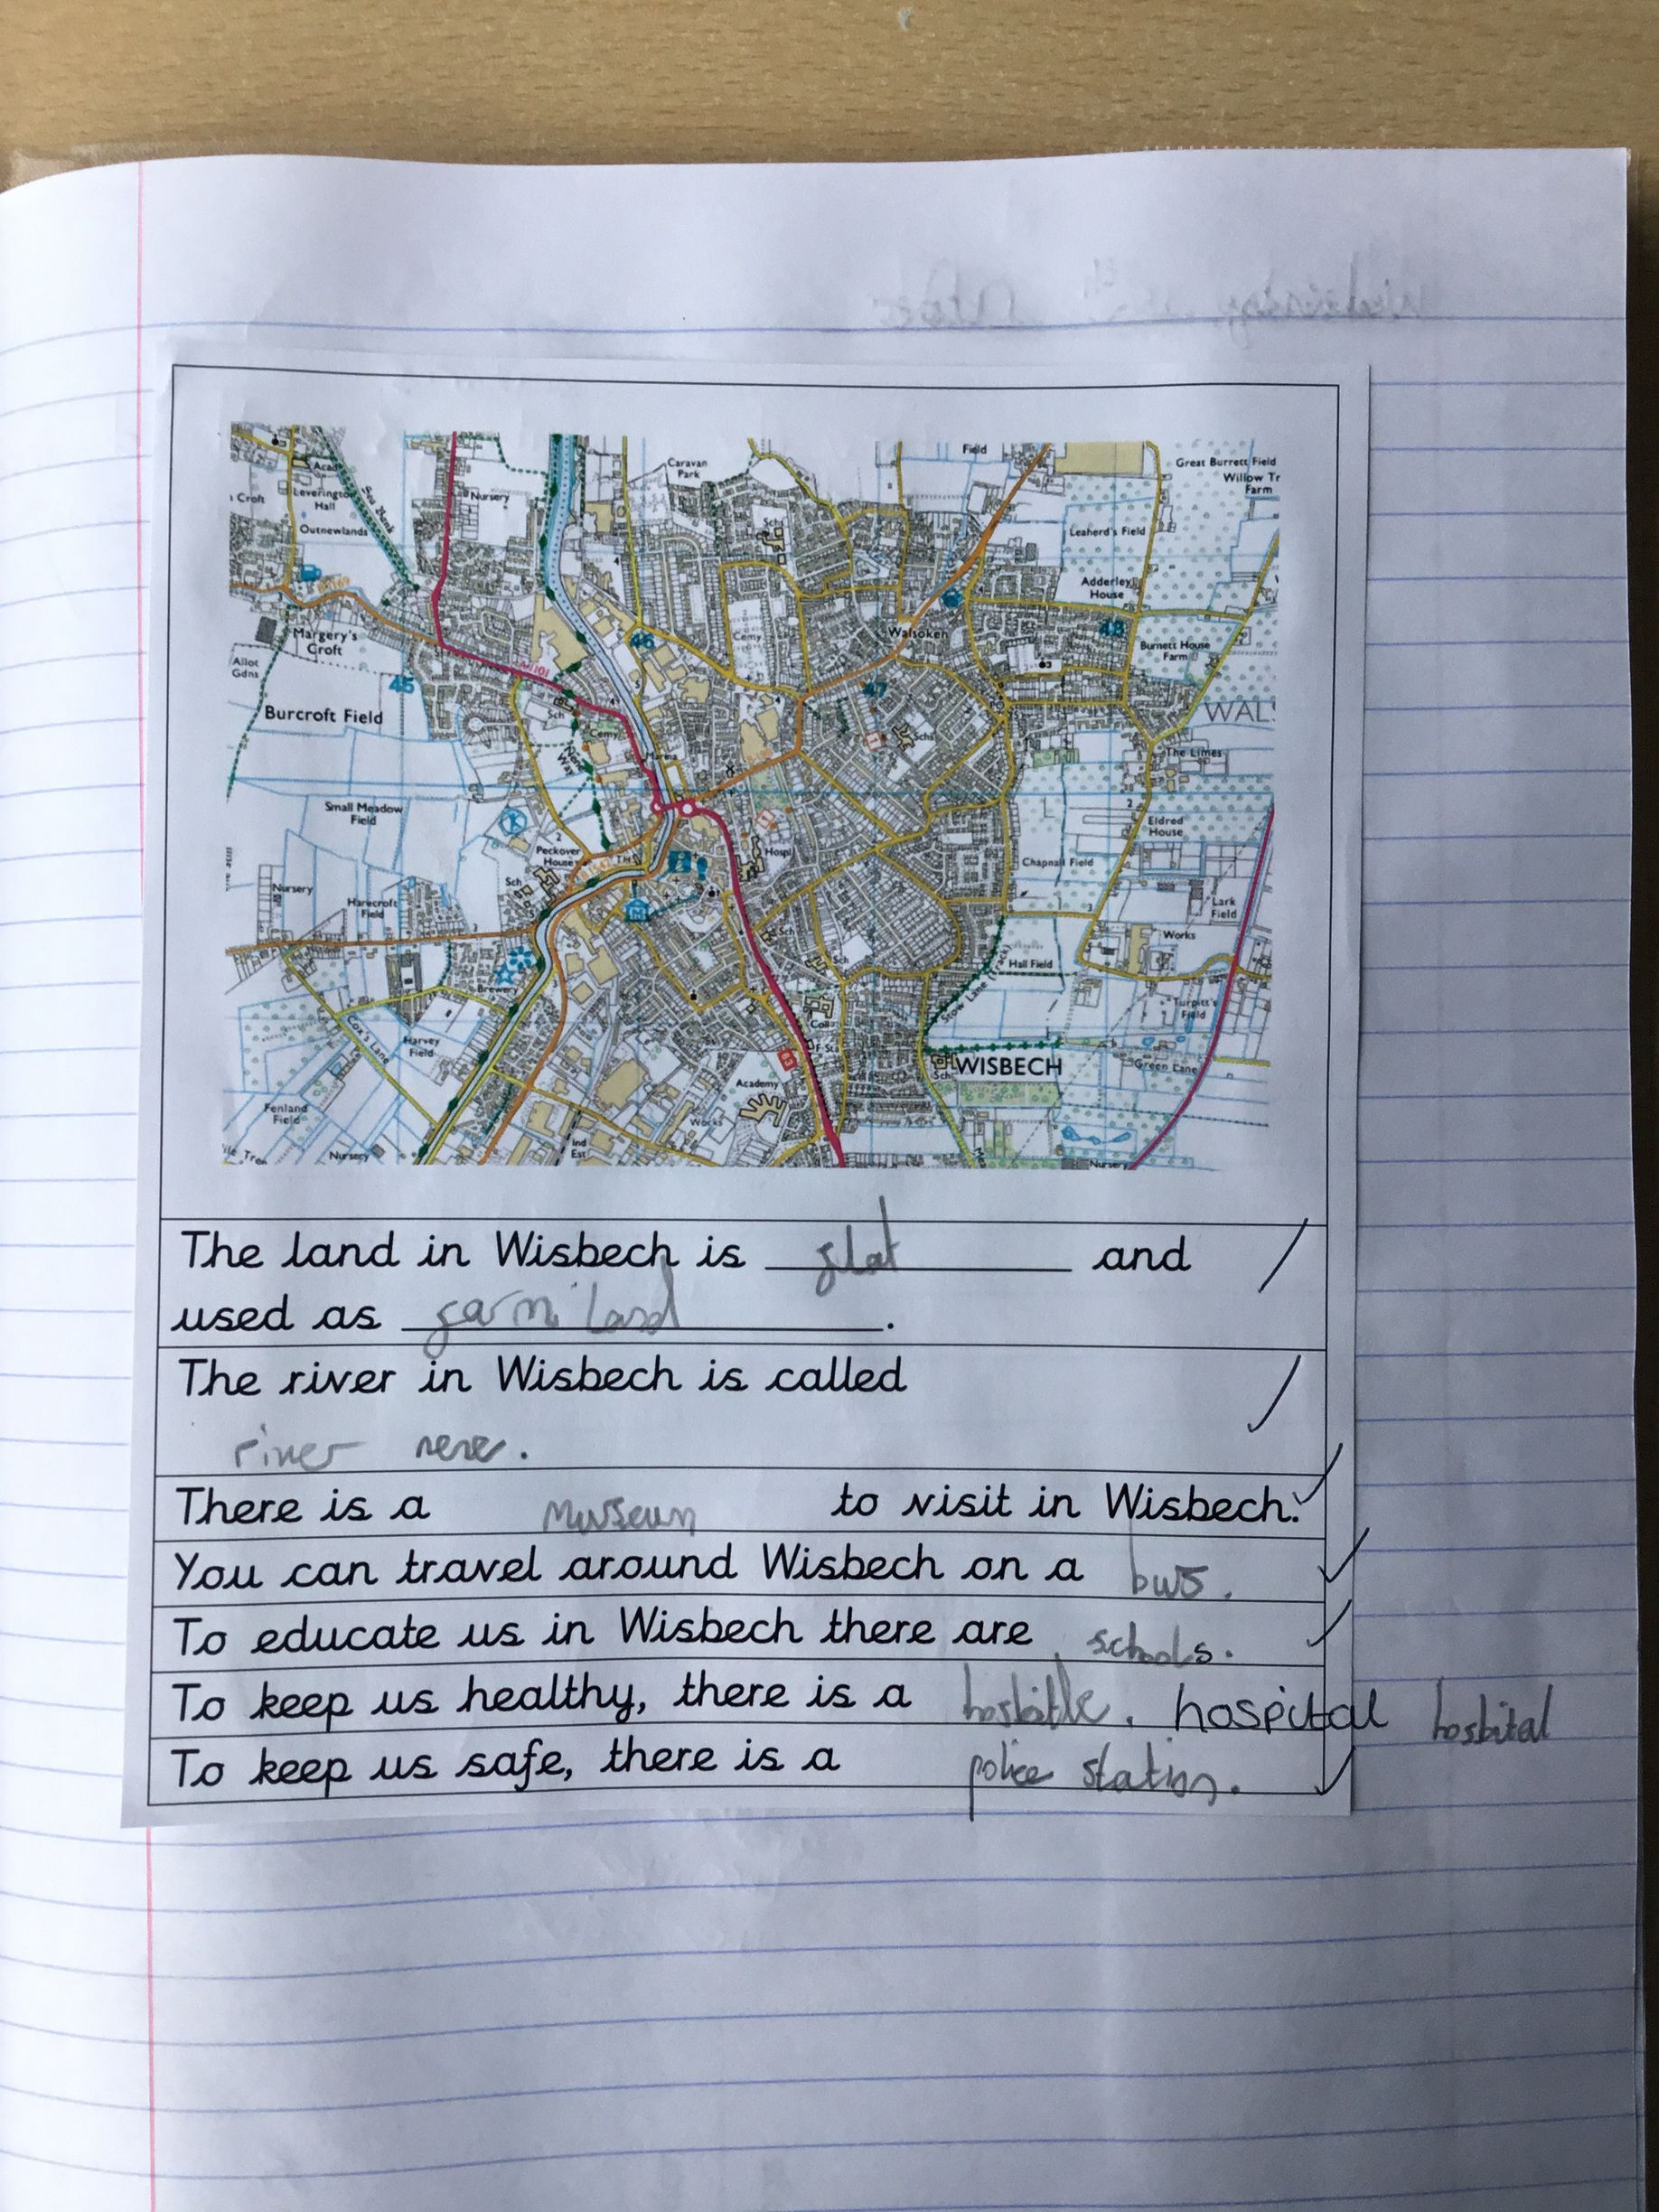 Field
Great Burrett Field
Caravan
Park
Willow Tr
Farm
Acad
Croft
Leverington
Hall
Sea Bank
Nursery
Outnewlands
Sch
Leaherd's Field
Adderley
House
Margery's
Croft
Allot
Gdns
A1101
46
Cemy
Walsoken
48
Burnett House
Farm
45
47
Burcroft Field
Sch
Cemy
Schs
WALS
The Limes
Nene Way
Small Meadow
Field
Eldred
House
Peckover
House
TH
Hospl
Chapnall Field
Nursery
Sch
Harecroft
Field
Lark
Field
Works
Sch
Sch
Hall Field
Brewery
Stow Lane (Track)
Turpitt's
Field
Cox's Lane
Harvey
Field
Coll
F Sta
63
Sch
WISBECH
Green Lane
Academy
Fenland
Field
Works
Ind
Est
Nursery
Nursery
The land in Wisbech is flat and
used as farm land.
The river in Wisbech is called
river nene.
There is a museum to visit in Wisbech.
You can travel around Wisbech on a bus.
To educate us in Wisbech there are schools.
To keep us healthy, there is a hosbitle. hospital hosbital
To keep us safe, there is a police station.